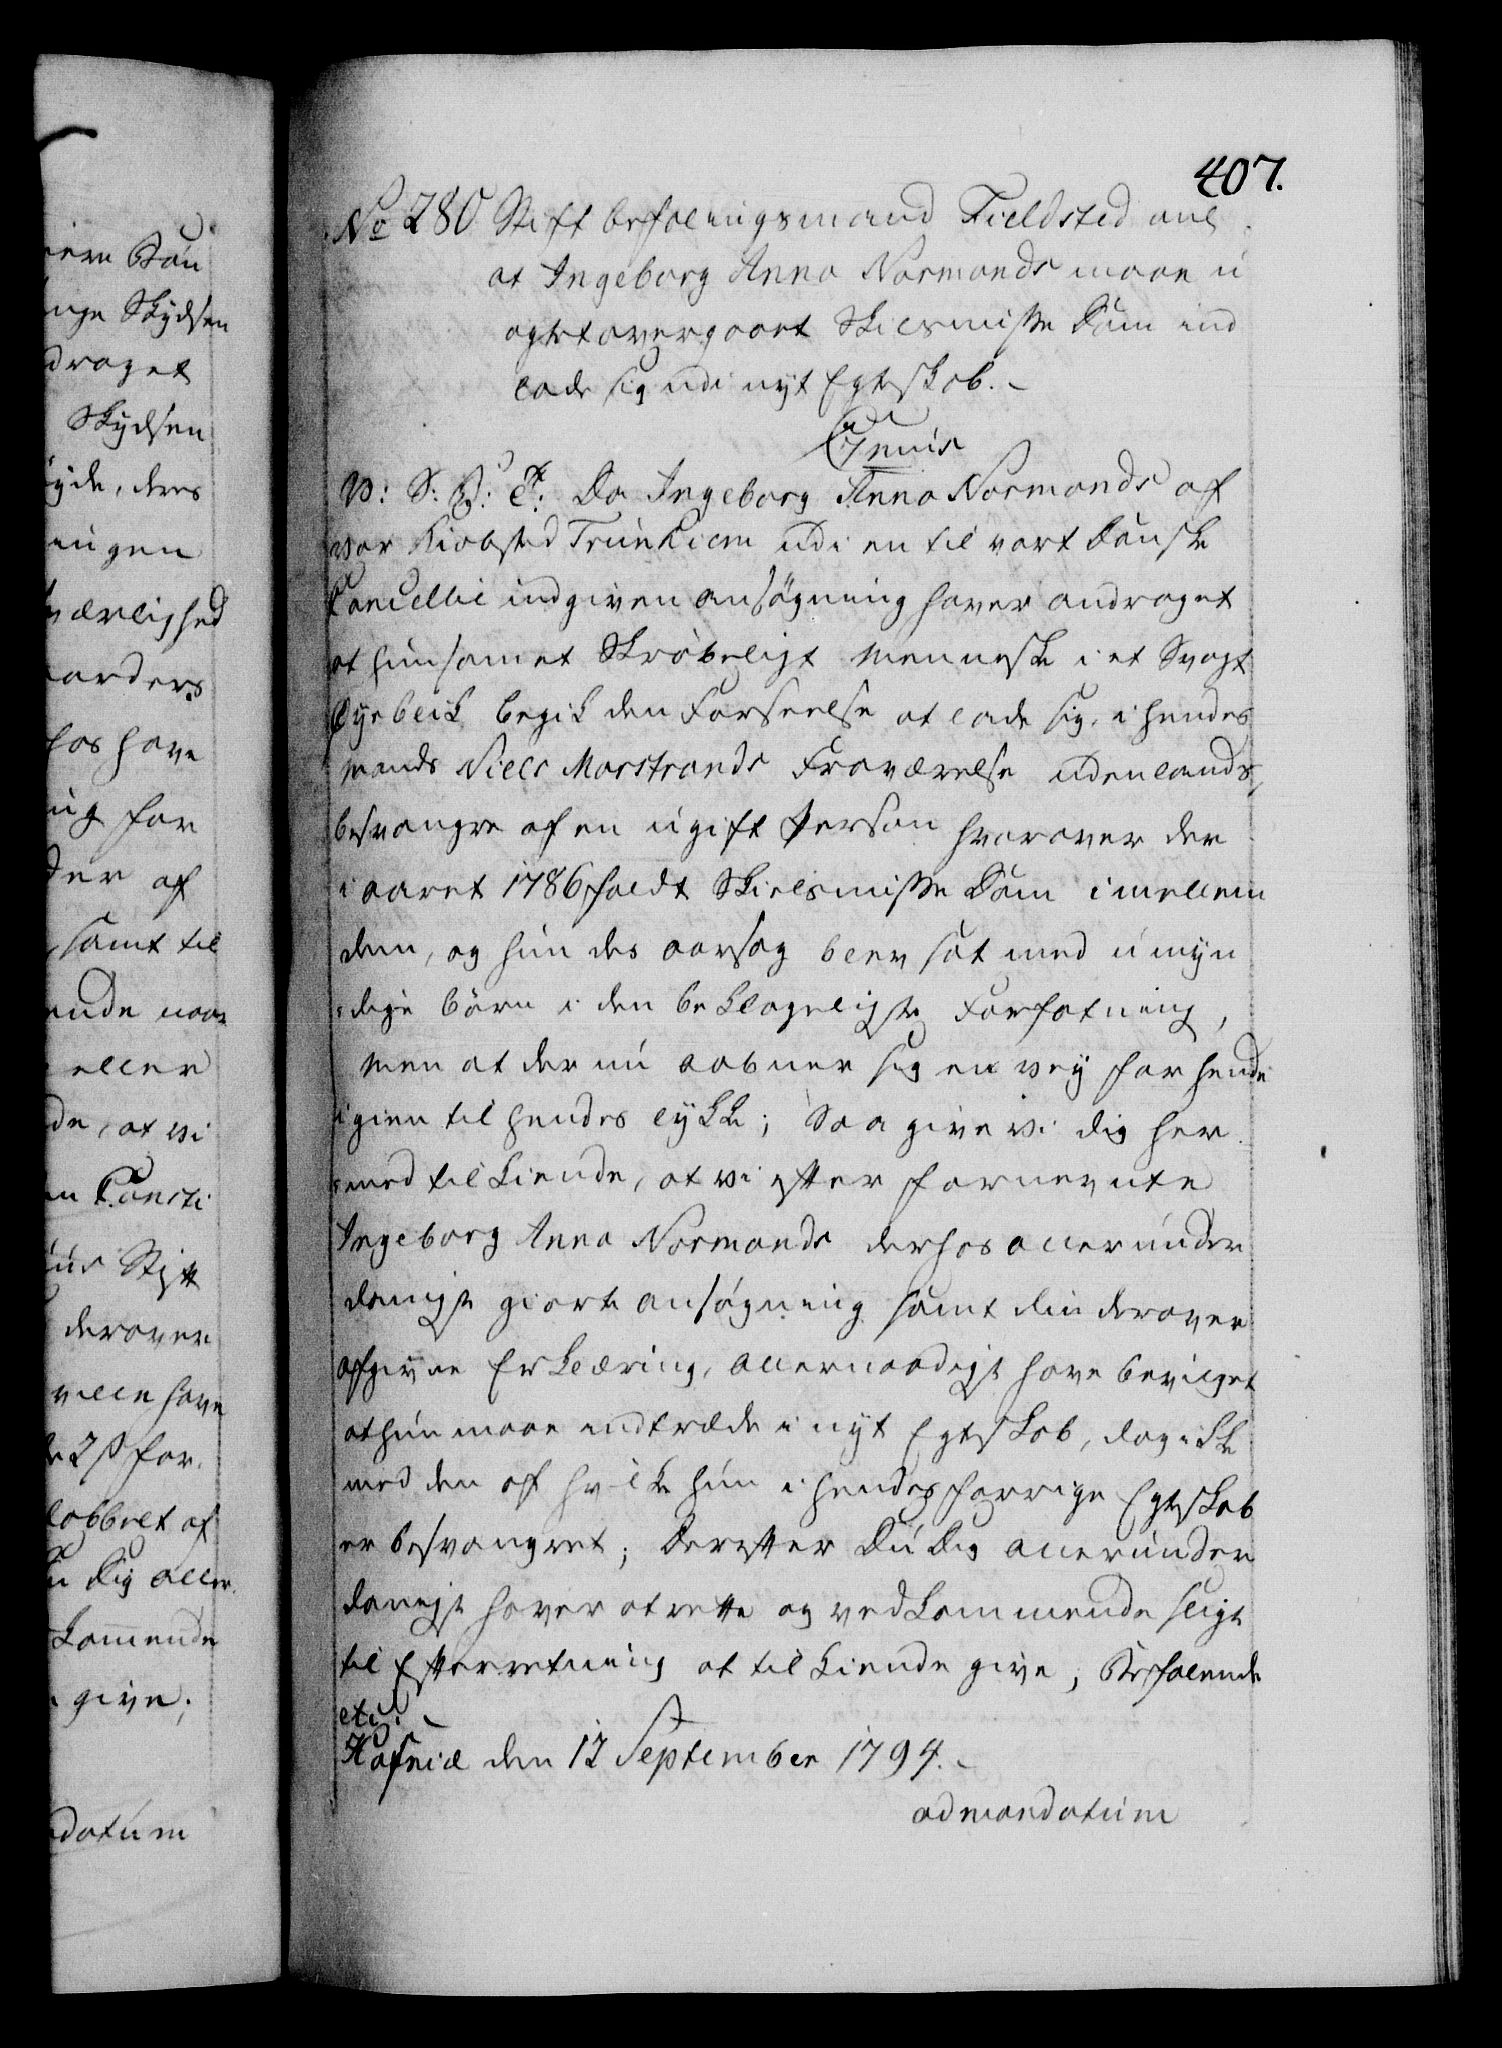 407.
No 280 Stiftbefalingsmand Fieldsted anl
at Ingeborg Anna Normands maae u
agtet overgaaet Skilsmisse Dom ind
lade sig udi nyt Egteskab.
Genis
V: S: B: T: Da Ingeborg Anna Normands af
vor Kiøbsted Trunhiem udi en til vort Danske
Cancellie indgiven ansøgning haver andraget
at hun som et Skrøbeligt Menneske i et Svagt
Øyeblik begik den Forseelse at lade sig, i hendes
Mands Niels Morstrands Fraværelse udenlands,
besvangre af en ugift Person hvorover der
i aaret 1786 faldt Skilsmisse Dom imellem
dem, og hun des aarsag blev sat med umyn
dige børn i den beklageligste Forfatning,
Men at der nu aabner sig en vey for hende
igien til hendes lykke; Saa give Vi dig her
med tilkiende, at vi efter fornevnte
Ingeborg Anna Normands derhos allerunder
danigst giorte ansøgning samt din derover
afgivne Erklæring, allernaadigst have bevilget
at hun maae indtræde i nyt Egteskab, dog ikke
med den af hvilke hun i hendes forrige Egteskab
er besvangret; Derefter Du Dig allerunder
danigst haver at rette og vedkommende sligt
til Efterretning at tilkiende give, Befalende
etc:
Hafniæ den 12 September 1794.
ad mandatum